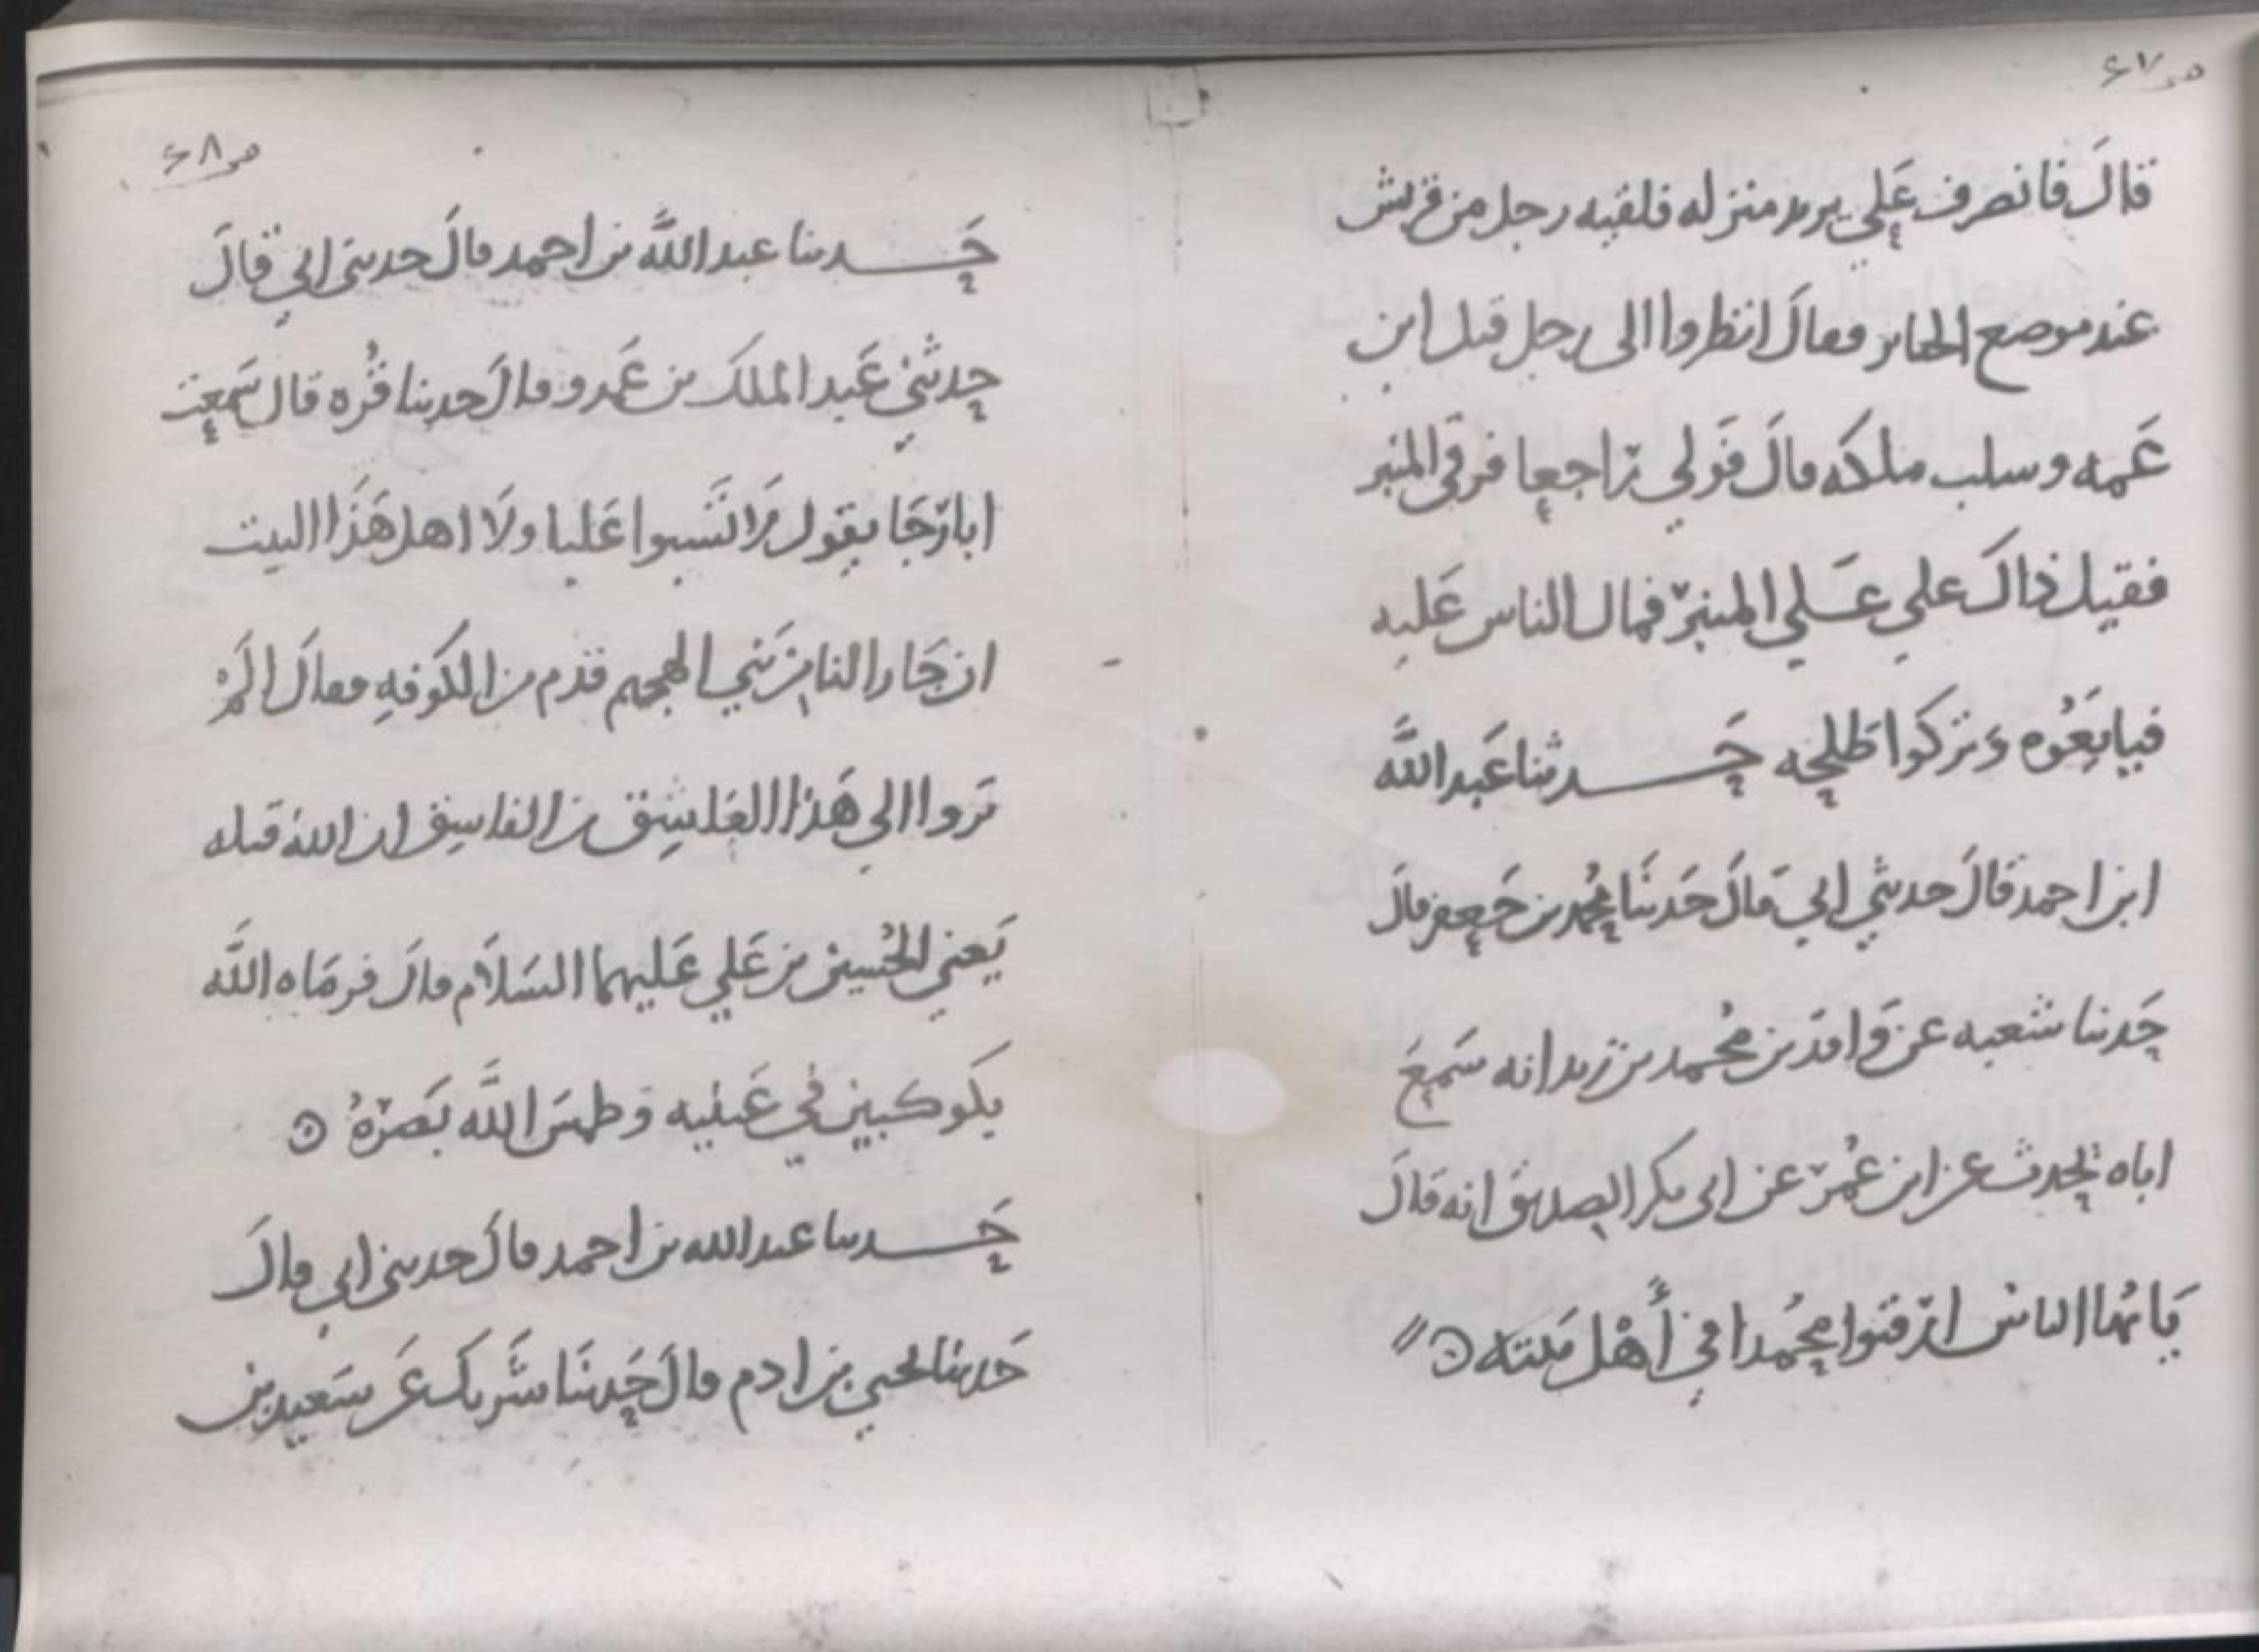 ص ٦٧
قالَ فانصرف عَلي يريد منزله فلقيه رجل من قريش
عند موضع الجنائز فقالَ انظروا الى رجل قتل ابن
عَمه وسلب ملكه قالَ فَولي راجعا فرقي المنبر
فقيل ذاكَ علي عَلي المنبر فمال الناس عَليه
فبايَعُوه وَتركوا طلحه حَـدثنا عَبد اللَّه
ابن احمد قالَ حدثني ابي قالَ حَدثنَا مُحمد بن جَعفر قالَ
حَدثنا شعبه عن وَاقد بن مُحمد بن زيد انه سَمِعَ
اباه يحدث عن ابن عُمر عن ابى بكر الصديق انه قالَ
يَايُها الناس ارقبوا مُحمدا في أَهْل بَيته
ص ٦٨
حَـدثنا عبد اللَّه بن احمد قالَ حدثنى ابي قالَ
حدثني عَبد الملكَ بن عَمرو قالَ حدثنا قُره قال سَمِعت
ابا رَجَا يقول لَا تَسبوا عَليا ولَا اهل هَذَا البيت
ان جَارا لنا من بَني الهجيم قدم من الكوَفهِ فقالَ الَمْ
تروا الي هَذا الفَاسِق بن الفاسِق ان اللهَ قتله
يَعني الحُسين بن عَلي عَليهما السَلاَم قالَ فرمَاه اللَّه
بكوكبين في عَينيه وَطمسَ اللَّه بَصَرَهُ
حَـدثنا عبد الله بن احمد قالَ حدثني ابي قالَ
حَدثنا يحيي بن ادم قالَ حَدثنَا شَريك عَن سَعيد بن